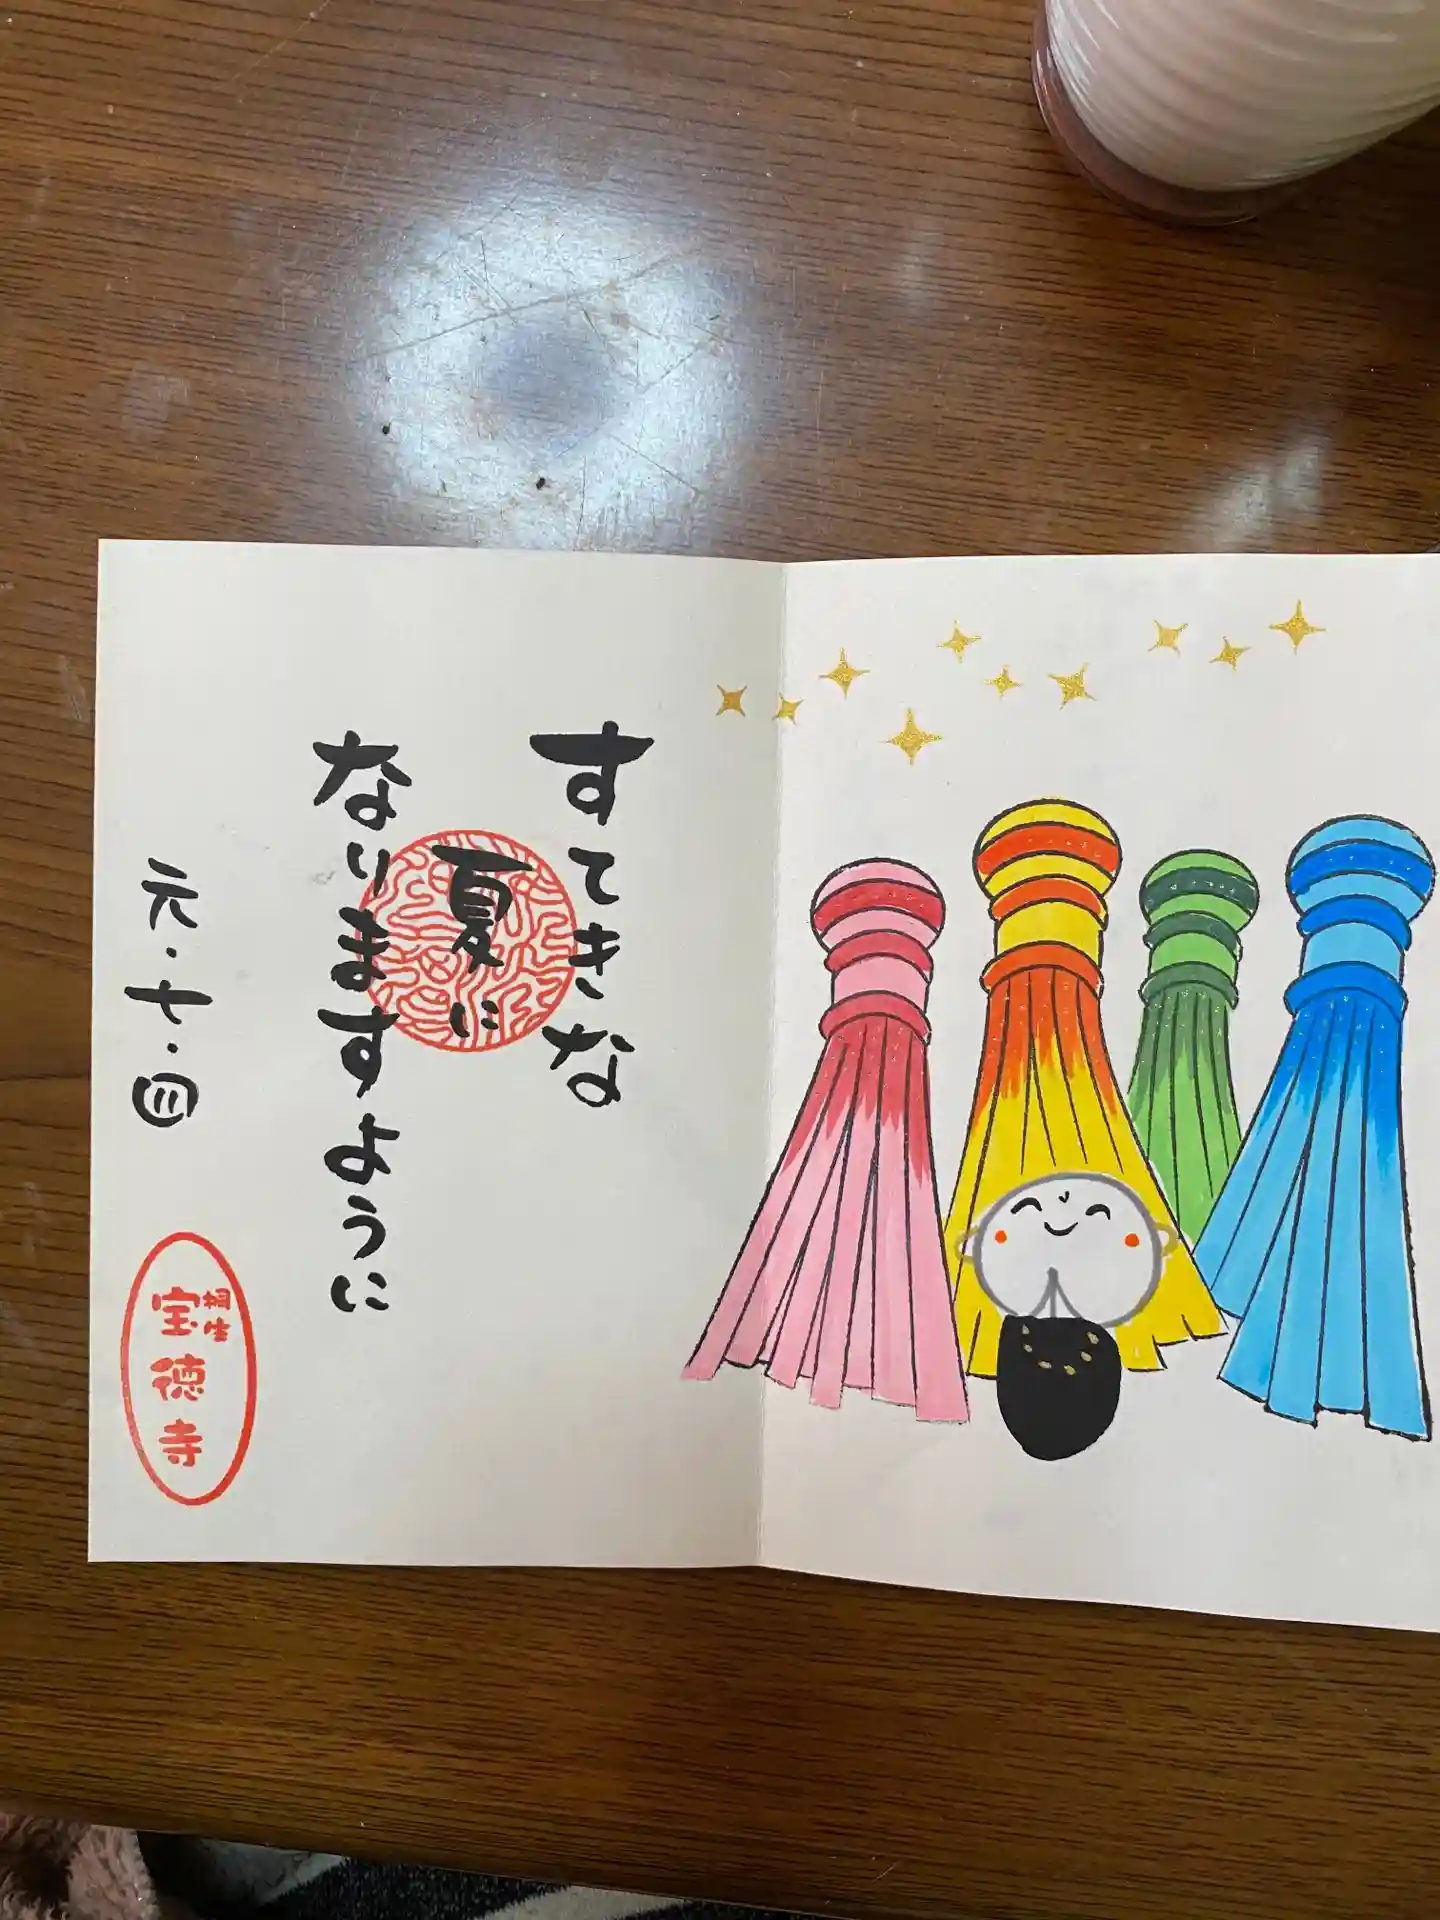 すてきな
夏に
なりますように
元・七・三
桐生
宝徳寺